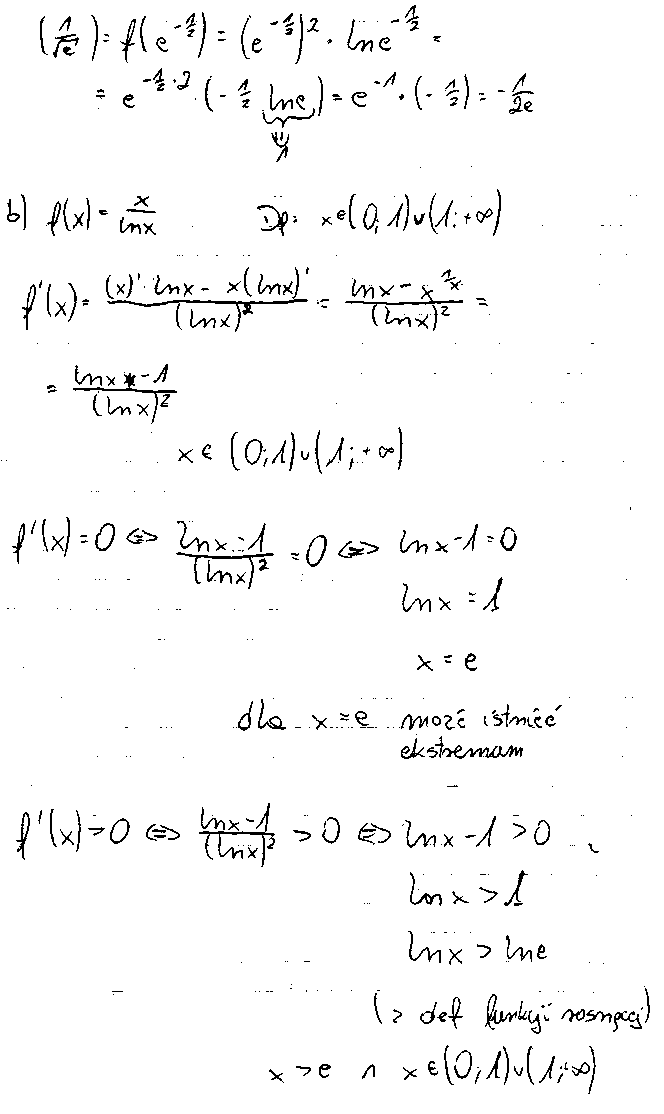 (1/√e) = f(e^(-1/2)) = (e^(-1/2))² · ln e^(-1/2) =
= e^(-1/2·2) · (-1/2 ln e) = e^(-1) · (-1/2) = -1/2e
1
b) f(x) = x/lnx   Df: x∈(0;1)∪(1;+∞)
f'(x) = ((x)'·lnx - x(lnx)')/(lnx)² = (lnx - x^(1/x))/(lnx)² =
= (lnx - 1)/(lnx)²
x∈(0;1)∪(1;+∞)
f'(x)=0 ⇔ (lnx-1)/(lnx)² = 0 ⇔ lnx-1=0
lnx = 1
x = e
dla x=e może istnieć
ekstremum
f'(x)>0 ⇔ (lnx-1)/(lnx)² > 0 ⇔ lnx-1>0
lnx > 1
lnx > lne
(z def funkcji rosnącej)
x>e ∧ x∈(0;1)∪(1;+∞)